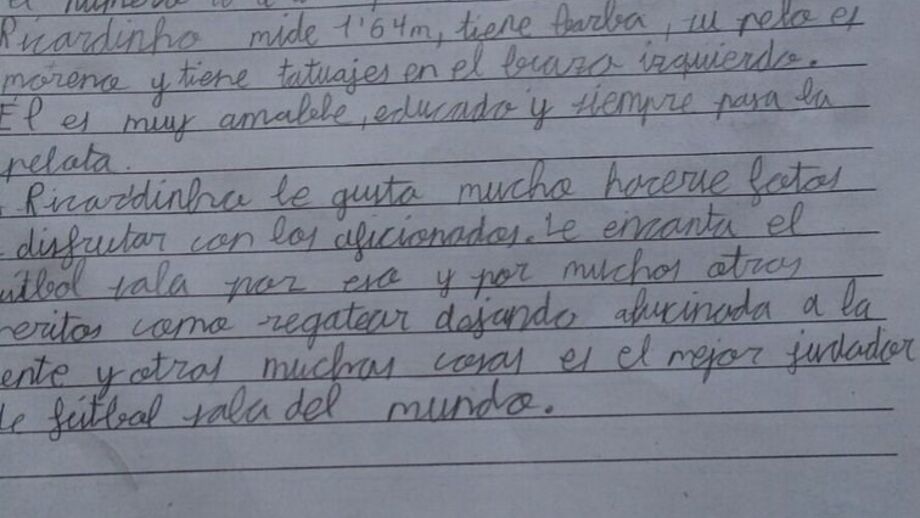 el número
Ricardinho mide 1'64m, tiene barba, su pelo es
moreno y tiene tatuajes en el brazo izquierdo.
Él es muy amable, educado y siempre pasa la
pelota.
Ricardinho le gusta mucho hacerse fotos
disfrutar con los aficionados. Le encanta el
utbol sala por eso y por muchos otros
eritos como regatear dejando alucinada a la
ente y otras muchas cosas es el mejor jurdador
de fútbol sala del mundo.